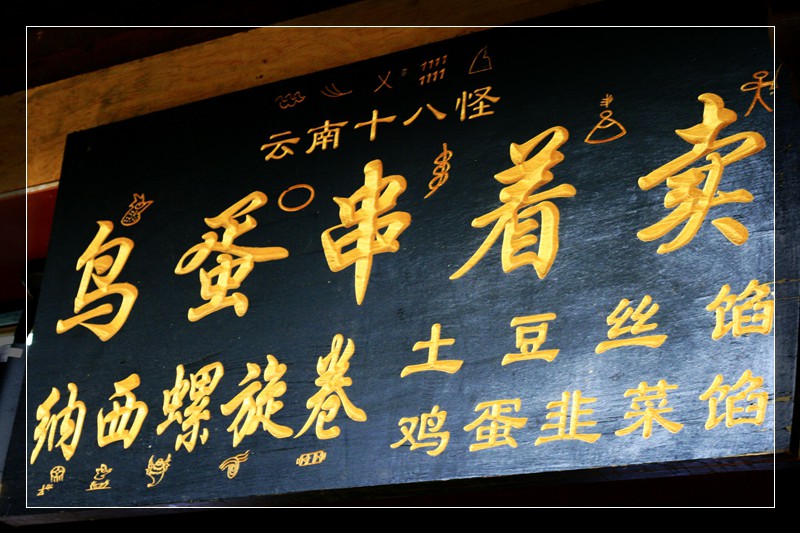 云南十八怪
鸟蛋串着卖
纳西螺旋卷
土豆丝馅
鸡蛋韭菜馅